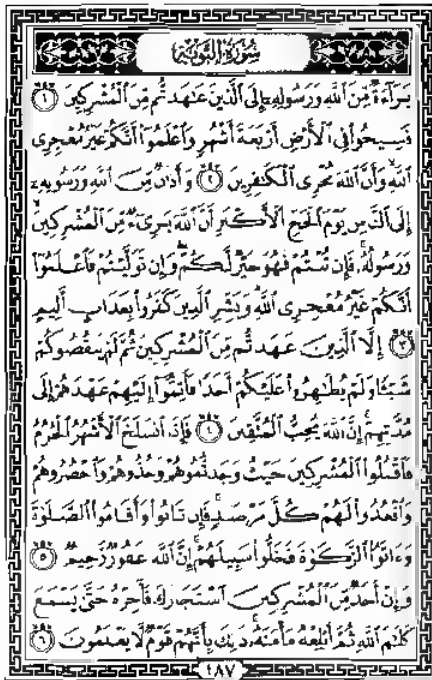 سُورَةُ التَّوْبَةِ
بَرَآءَةٌ مِّنَ ٱللَّهِ وَرَسُولِهِۦٓ إِلَى ٱلَّذِينَ عَٰهَدتُّم مِّنَ ٱلْمُشْرِكِينَ ١
فَسِيحُوا۟ فِى ٱلْأَرْضِ أَرْبَعَةَ أَشْهُرٍ وَٱعْلَمُوٓا۟ أَنَّكُمْ غَيْرُ مُعْجِزِى
ٱللَّهِ وَأَنَّ ٱللَّهَ مُخْزِى ٱلْكَٰفِرِينَ ٢ وَأَذَٰنٌ مِّنَ ٱللَّهِ وَرَسُولِهِۦٓ
إِلَى ٱلنَّاسِ يَوْمَ ٱلْحَجِّ ٱلْأَكْبَرِ أَنَّ ٱللَّهَ بَرِىٓءٌ مِّنَ ٱلْمُشْرِكِينَ
وَرَسُولُهُۥ فَإِن تُبْتُمْ فَهُوَ خَيْرٌ لَّكُمْ وَإِن تَوَلَّيْتُمْ فَٱعْلَمُوٓا۟
أَنَّكُمْ غَيْرُ مُعْجِزِى ٱللَّهِ وَبَشِّرِ ٱلَّذِينَ كَفَرُوا۟ بِعَذَابٍ أَلِيمٍ
٣ إِلَّا ٱلَّذِينَ عَٰهَدتُّم مِّنَ ٱلْمُشْرِكِينَ ثُمَّ لَمْ يَنقُصُوكُمْ
شَيْـًٔا وَلَمْ يُظَٰهِرُوا۟ عَلَيْكُمْ أَحَدًا فَأَتِمُّوٓا۟ إِلَيْهِمْ عَهْدَهُمْ إِلَىٰ
مُدَّتِهِمْ إِنَّ ٱللَّهَ يُحِبُّ ٱلْمُتَّقِينَ ٤ فَإِذَا ٱنسَلَخَ ٱلْأَشْهُرُ ٱلْحُرُمُ
فَٱقْتُلُوا۟ ٱلْمُشْرِكِينَ حَيْثُ وَجَدتُّمُوهُمْ وَخُذُوهُمْ وَٱحْصُرُوهُمْ
وَٱقْعُدُوا۟ لَهُمْ كُلَّ مَرْصَدٍ فَإِن تَابُوا۟ وَأَقَامُوا۟ ٱلصَّلَوٰةَ
وَءَاتَوُا۟ ٱلزَّكَوٰةَ فَخَلُّوا۟ سَبِيلَهُمْ إِنَّ ٱللَّهَ غَفُورٌ رَّحِيمٌ ٥
وَإِنْ أَحَدٌ مِّنَ ٱلْمُشْرِكِينَ ٱسْتَجَارَكَ فَأَجِرْهُ حَتَّىٰ يَسْمَعَ
كَلَٰمَ ٱللَّهِ ثُمَّ أَبْلِغْهُ مَأْمَنَهُۥ ذَٰلِكَ بِأَنَّهُمْ قَوْمٌ لَّا يَعْلَمُونَ ٦
١٨٧